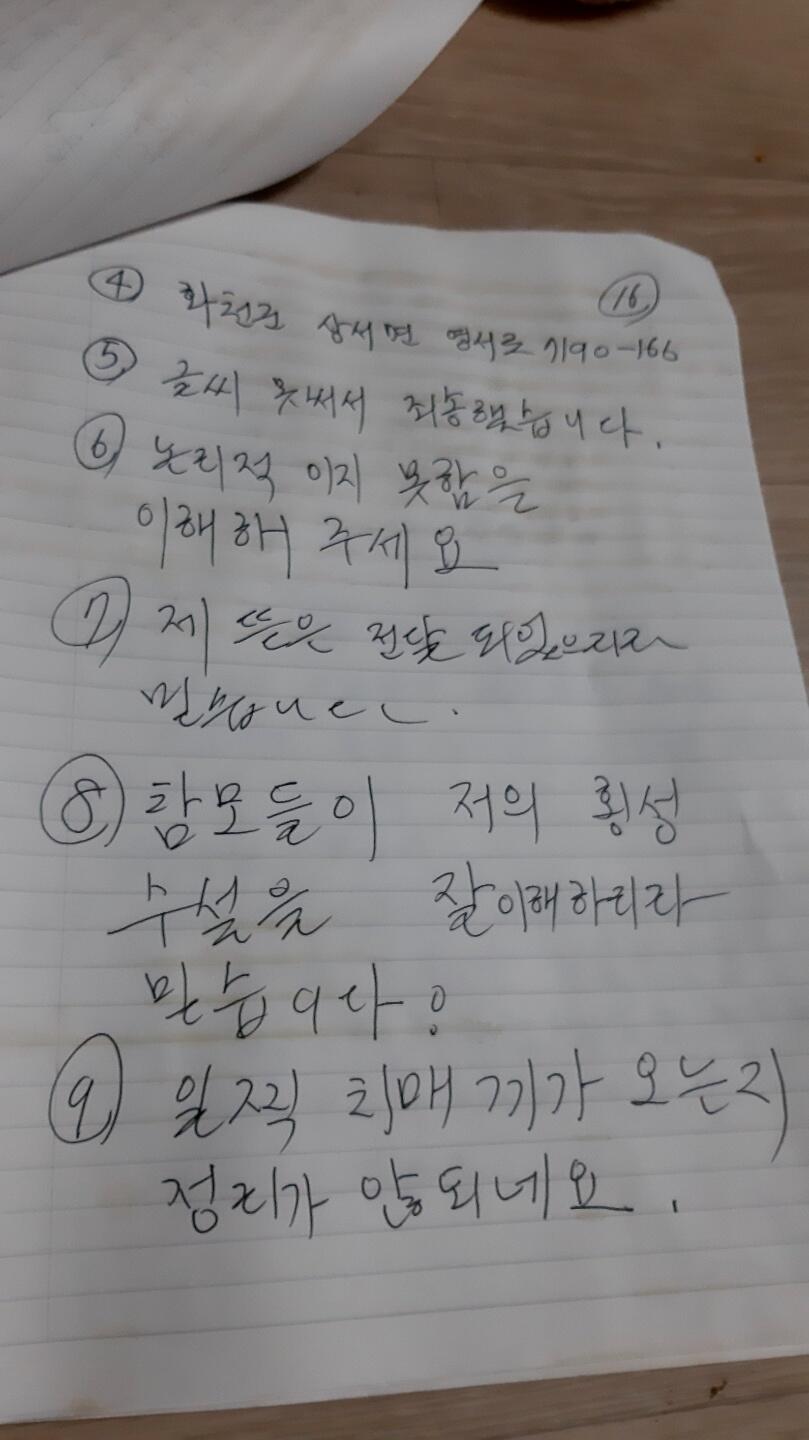 ④ 화천군 상서면 영서로 7190-166
⑯
⑤ 글씨 못써서 죄송했습니다.
⑥ 논리적 이지 못함을
이해해 주세요
⑦ 제 뜻은 전달 되었으리라
믿습니다.
⑧ 참모들이 저의 횡성
수설을 잘이해하리라
믿습니다.
⑨ 일찍 치매 끼가 오는지
정리가 않되네요.